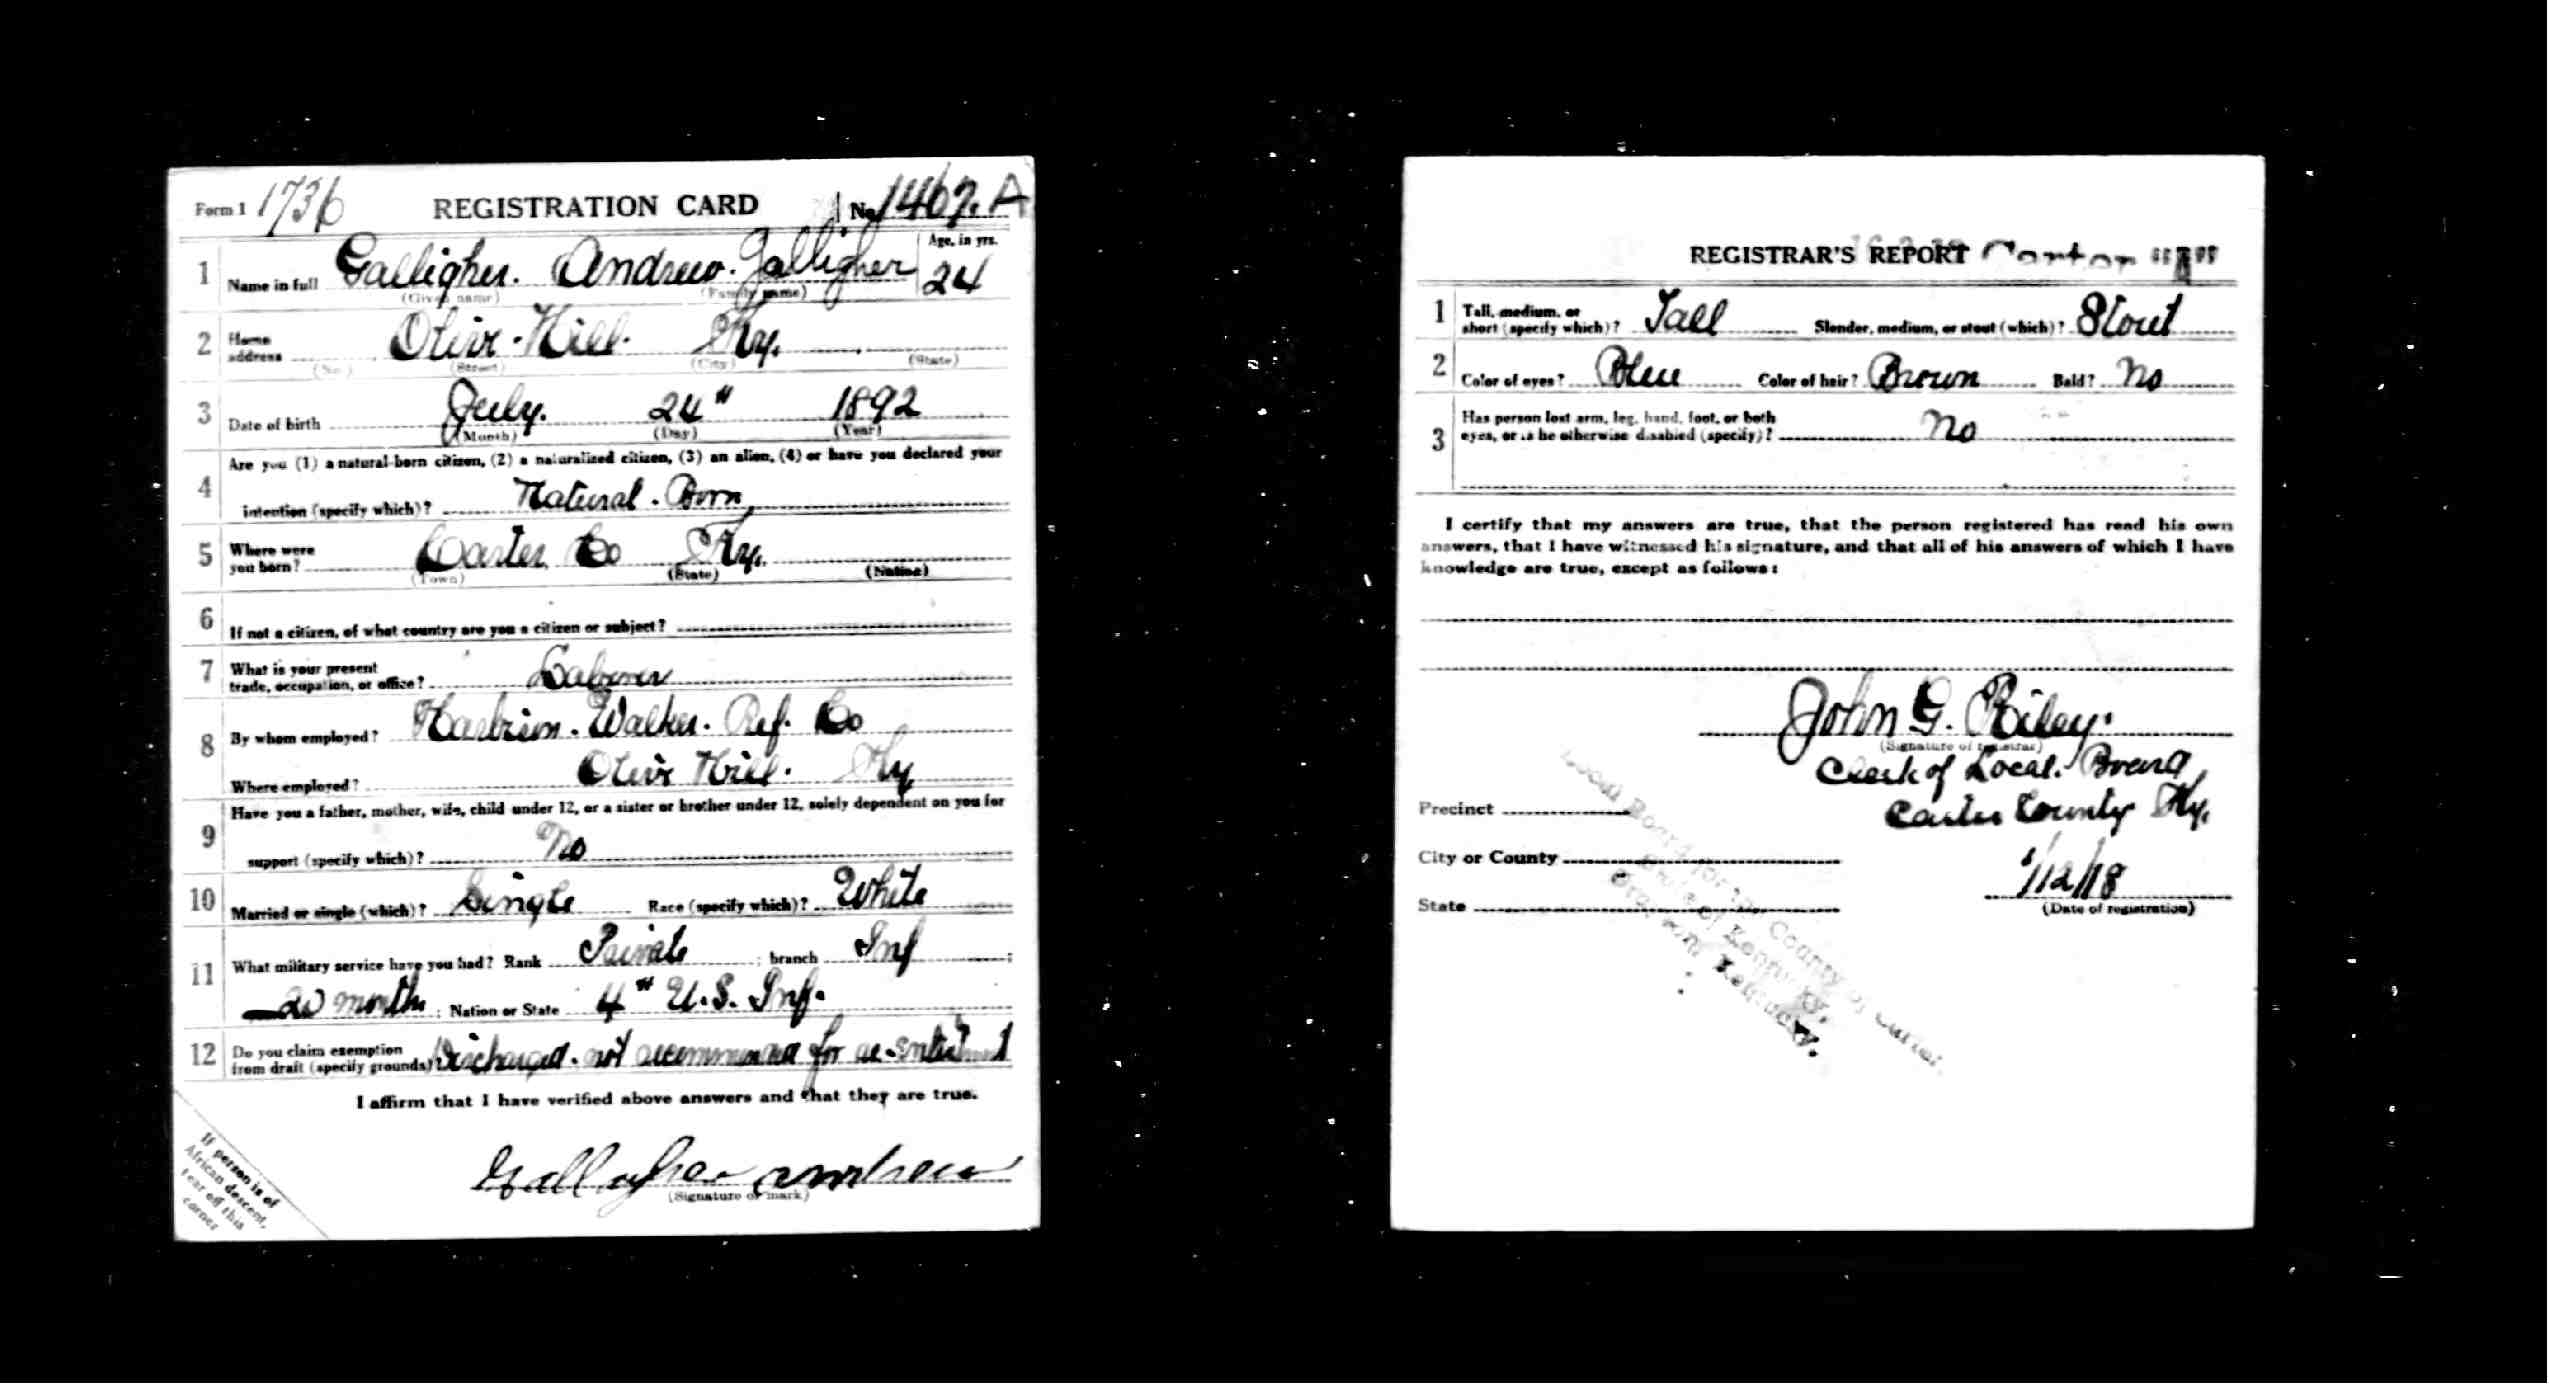 Form 1 1736 REGISTRATION CARD No. 1467. A
1 Name in full Galligher. Andrew. Galligher Age, in yrs. 24
(Given name) (Family name)
2 Home address Olive Hill. Ky.
(No.) (Street) (City) (State)
3 Date of birth July. 24" 1892
(Month) (Day) (Year)
4 Are you (1) a natural-born citizen, (2) a naturalized citizen, (3) an alien, (4) or have you declared your
intention (specify which)? Natural. Born
5 Where were you born? Carter Co Ky.
(Town) (State) (Nation)
6 If not a citizen, of what country are you a citizen or subject?
7 What is your present
trade, occupation, or office? Laborer
8 By whom employed? Harbison. Walker. Ref. Co
Where employed? Olive Hill. Ky
9 Have you a father, mother, wife, child under 12, or a sister or brother under 12, solely dependent on you for
support (specify which)? No
10 Married or single (which)? Single Race (specify which)? White
11 What military service have you had? Rank Private ; branch Inf ;
20 months ; Nation or State 4" U.S. Inf.
12 Do you claim exemption
from draft (specify grounds)? Discharged. not recommended for re-enlistment
I affirm that I have verified above answers and that they are true.
Gallagher Andrew
(Signature or mark)
If person is of
African descent,
tear off this
corner
REGISTRAR'S REPORT Carter
1 Tall, medium, or
short (specify which)? Tall Slender, medium, or stout (which)? Stout
2 Color of eyes? Blue Color of hair? Brown Bald? No
3 Has person lost arm, leg, hand, foot, or both
eyes, or is he otherwise disabled (specify)? No
I certify that my answers are true, that the person registered has read his own
answers, that I have witnessed his signature, and that all of his answers of which I have
knowledge are true, except as follows:
John G. Riley.
(Signature of registrar)
Clerk of Local. Board
Precinct Carter County Ky.
City or County
State /12/18
(Date of registration)
Local Board for the County of Carter
State of Kentucky.
Kentucky.